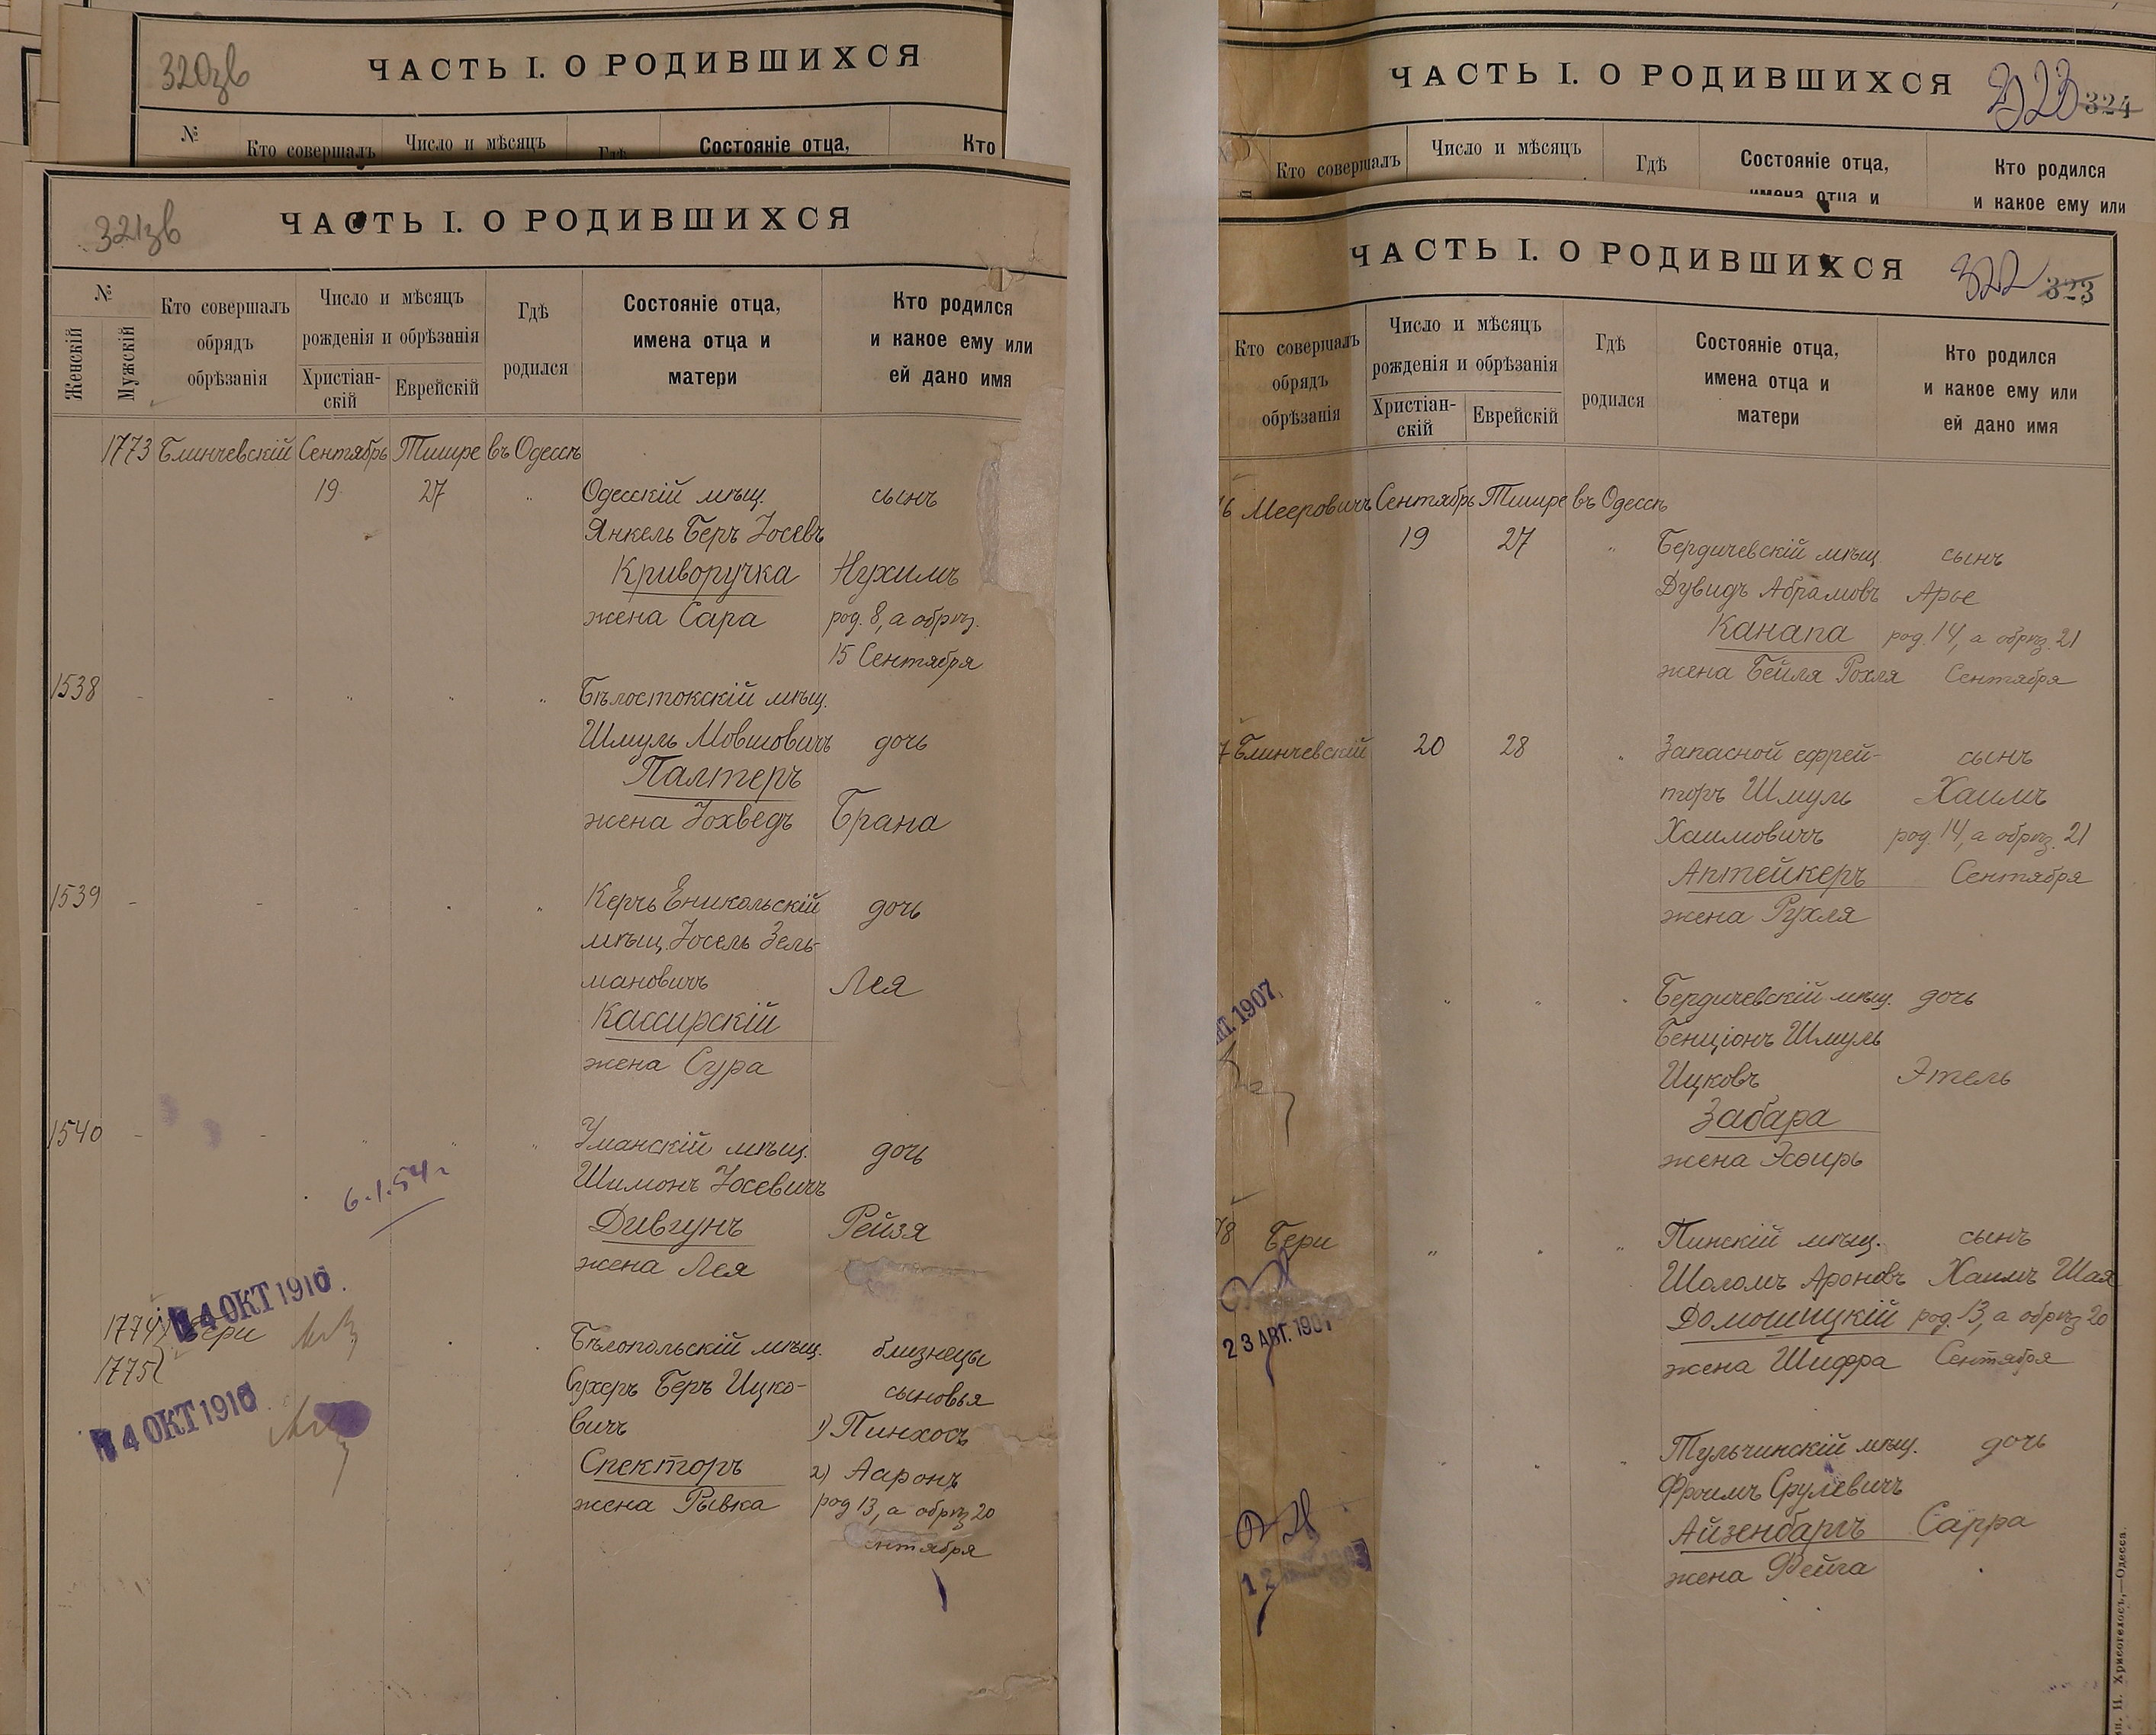 320зв
ЧАСТЬ I. О РОДИВШИХСЯ
№
Кто совершалъ
Число и мѣсяцъ
Гдѣ
Состояніе отца,
Кто
321зв
ЧАСТЬ I. О РОДИВШИХСЯ
№
Женскій
Мужскій
Кто совершалъ
обрядъ
обрѣзанія
Число и мѣсяцъ
рожденія и обрѣзанія
Христіан-
скій
Еврейскій
Гдѣ
родился
Состояніе отца,
имена отца и
матери
Кто родился
и какое ему или
ей дано имя
1773 Блинчевскій Сентябрь Тишре въ Одессѣ
19 27 " Одесскій мѣщ. сынъ
Янкель Беръ Іосевъ
Криворучка Нухимъ
жена Сара род. 8, а обрѣз.
15 Сентября
1538 - - " " " Бѣлостокскій мѣщ.
Шмуль Мовшовичъ дочь
Палтеръ
жена Іохведъ Брана
1539 - - " " " Керчь Еникольскій дочь
мѣщ. Іосель Зель-
мановичъ Лея
Кассирскій
жена Сура
1540 - - " " " Уманскій мѣщ. дочь
Шимонъ Іосевичъ
Дивгунъ Рейзя
жена Лея
6.1.54 г
4 ОКТ 1910.
1774 Бери
1775
Бѣлопольскій мѣщ. близнецы
Сухеръ Беръ Ицко- сыновья
вичъ 1) Пинхосъ
Спекторъ 2) Ааронъ
жена Рывка род 13, а обрѣз 20
ентября
4 ОКТ 1910.
ЧАСТЬ I. О РОДИВШИХСЯ
323 324
Кто совершалъ
Число и мѣсяцъ
Гдѣ
Состояніе отца,
имена отца и
Кто родился
и какое ему или
ЧАСТЬ I. О РОДИВШИХСЯ
322 323
Кто совершалъ
обрядъ
обрѣзанія
Число и мѣсяцъ
рожденія и обрѣзанія
Христіан-
скій
Еврейскій
Гдѣ
родился
Состояніе отца,
имена отца и
матери
Кто родился
и какое ему или
ей дано имя
76 Мееровичъ Сентябрь Тишре въ Одессѣ
19 27 " Бердичевскій мѣщ. сынъ
Дувидъ Абрамовъ Арье
Канапа род. 14, а обрѣз. 21
жена Бейля Рохля Сентября
7 Блинчевскій 20 28 " Запасной ефрей- сынъ
торъ Шмуль Хаимъ
Хаимовичъ род. 14, а обрѣз. 21
Аптейкеръ Сентября
жена Рухля
" " " Бердичевскій мѣщ. дочь
Бенціонъ Шмуль
Ицковъ Этель
Забара
жена Эсѳирь
КТ. 1907.
78 Бери " " " Пинскій мѣщ. сынъ
Шоломъ Ароновъ Хаимъ Шая
Домошицкій род. 13, а обрѣз 20
жена Шифра Сентября
23 АВГ. 1907
" " " Тульчинскій мѣщ. дочь
Фроимъ Срулевичъ
Айзенбаргъ Сарра
жена Фейга
12
ип. И. Хрисогелосъ,—Одесса.